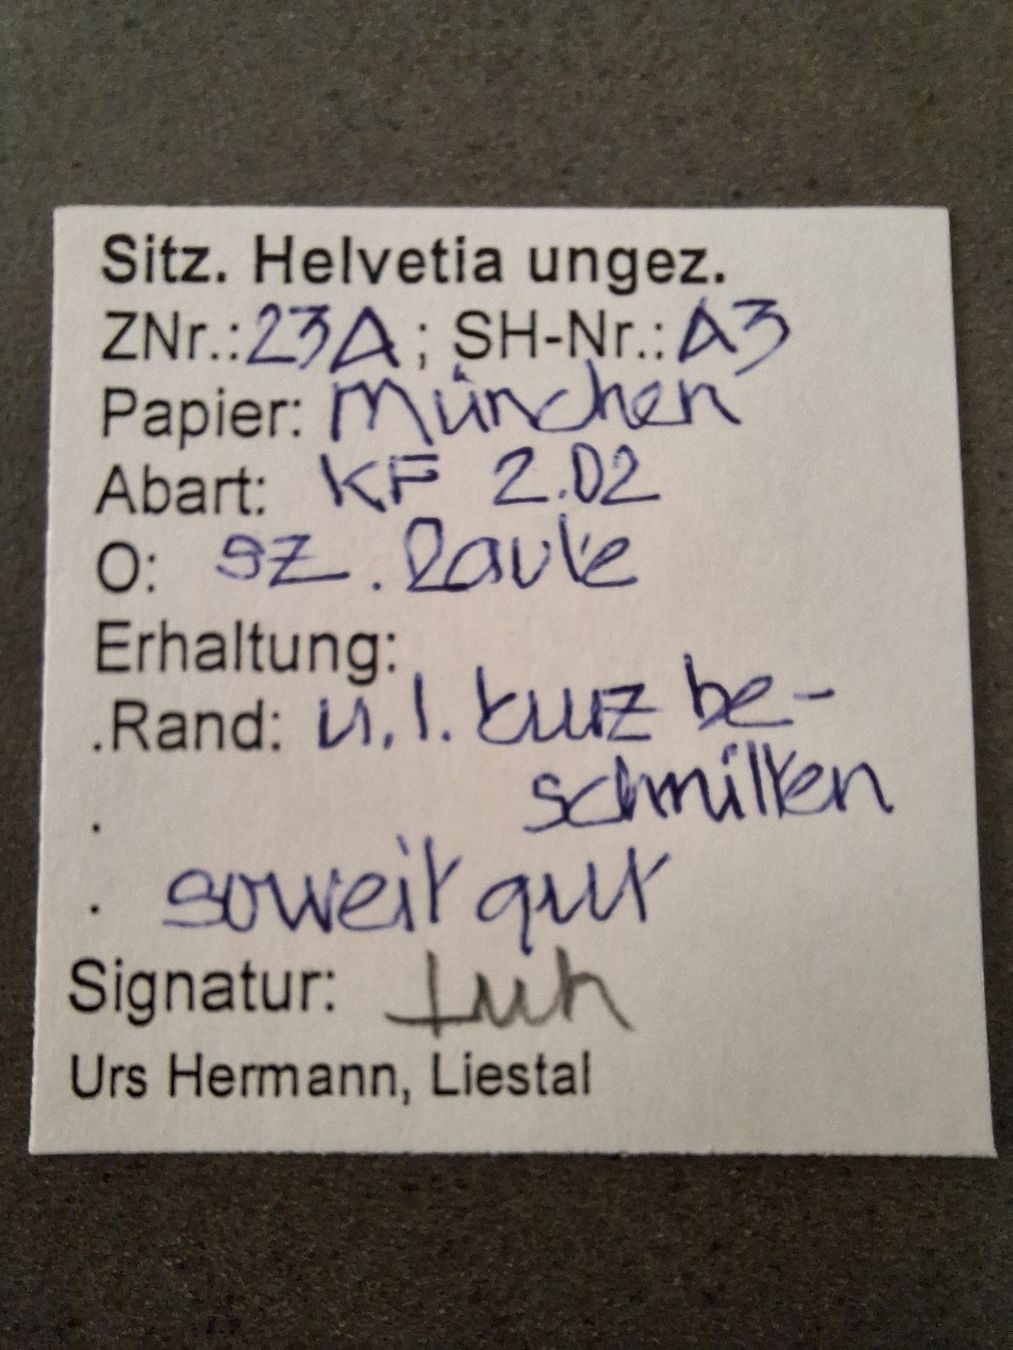 Sitz. Helvetia ungez.
ZNr.: 23A ; SH-Nr.: A3
Papier: München
Abart: KF 2.02
O: sz. Raute
Erhaltung:
.Rand: u. l. kurz be-
. schnitten
. soweit gut
Signatur:
Urs Hermann, Liestal